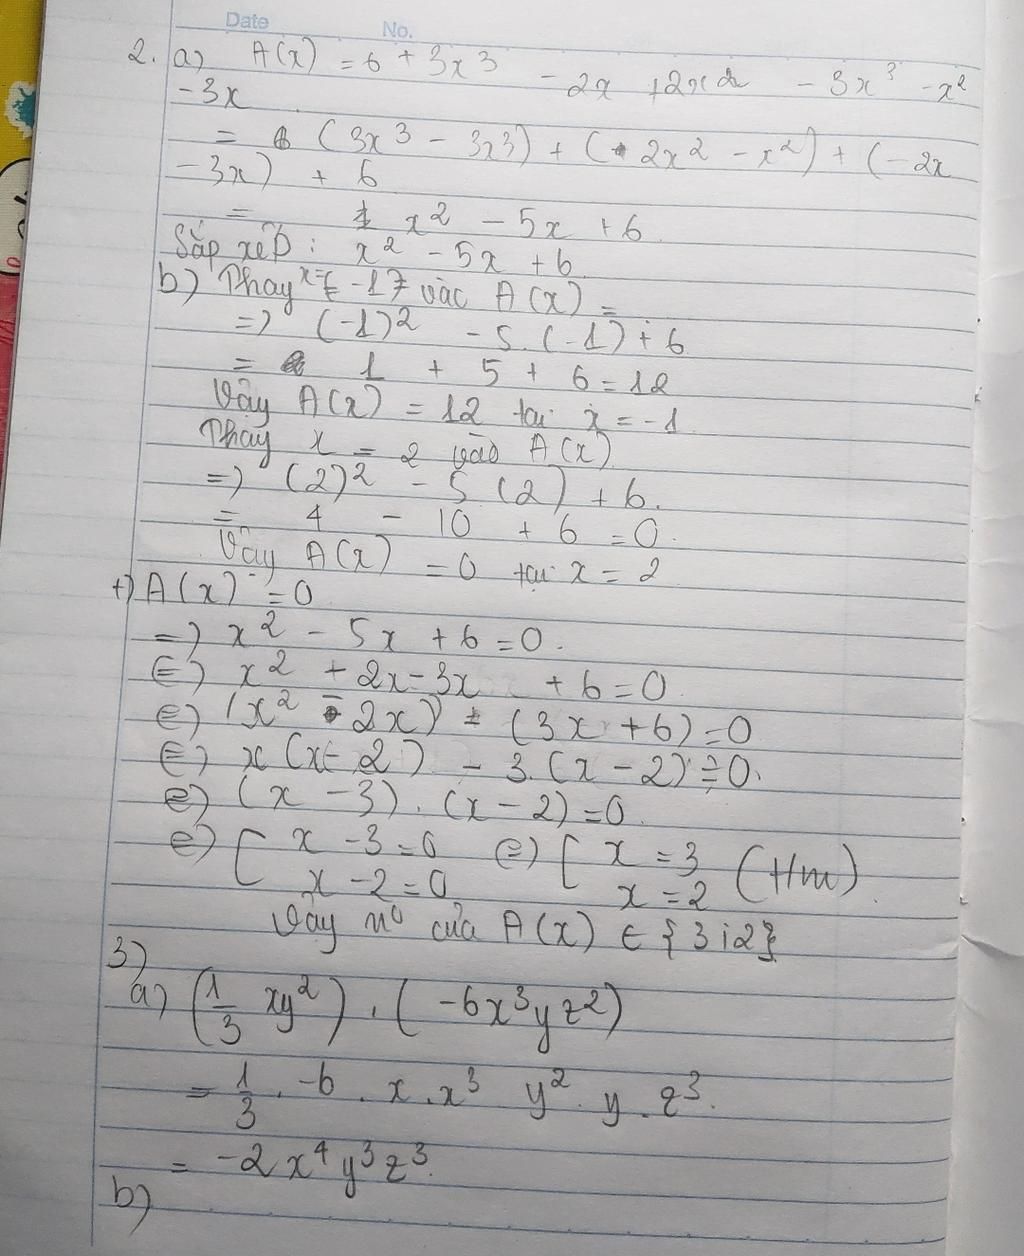 Date No.
2. a) A(x) = 6 + 3x³ - 2x + 2x² - 3x³ - x²
- 3x
= (3x³ - 3x³) + (2x² - x²) + (-2x
- 3x) + 6
= x² - 5x + 6
Sắp xếp : x² - 5x + 6
b) Thay x = -1 vào A(x) =
=> (-1)² - 5. (-1) + 6
= 1 + 5 + 6 = 12
Vậy A(x) = 12 tại x = -1
Thay x = 2 vào A(x)
=> (2)² - 5 (2) + 6.
= 4 - 10 + 6 = 0.
Vậy A(x) = 0 tại x = 2
+) A(x) = 0
=> x² - 5x + 6 = 0.
<=> x² + 2x - 3x + 6 = 0
<=> (x² - 2x) - (3x + 6) = 0
<=> x (x - 2) - 3. (x - 2) = 0.
<=> (x - 3) . (x - 2) = 0
<=> [ x - 3 = 0 <=> [ x = 3 (tm)
x - 2 = 0 x = 2
Vậy n⁰ của A(x) ∈ {3 ; 2}
3)
a) (1/3 xy²) . (-6x³yz²)
= 1/3 . -6 . x . x³ y² . y . z³.
= -2x⁴y³z³.
b)